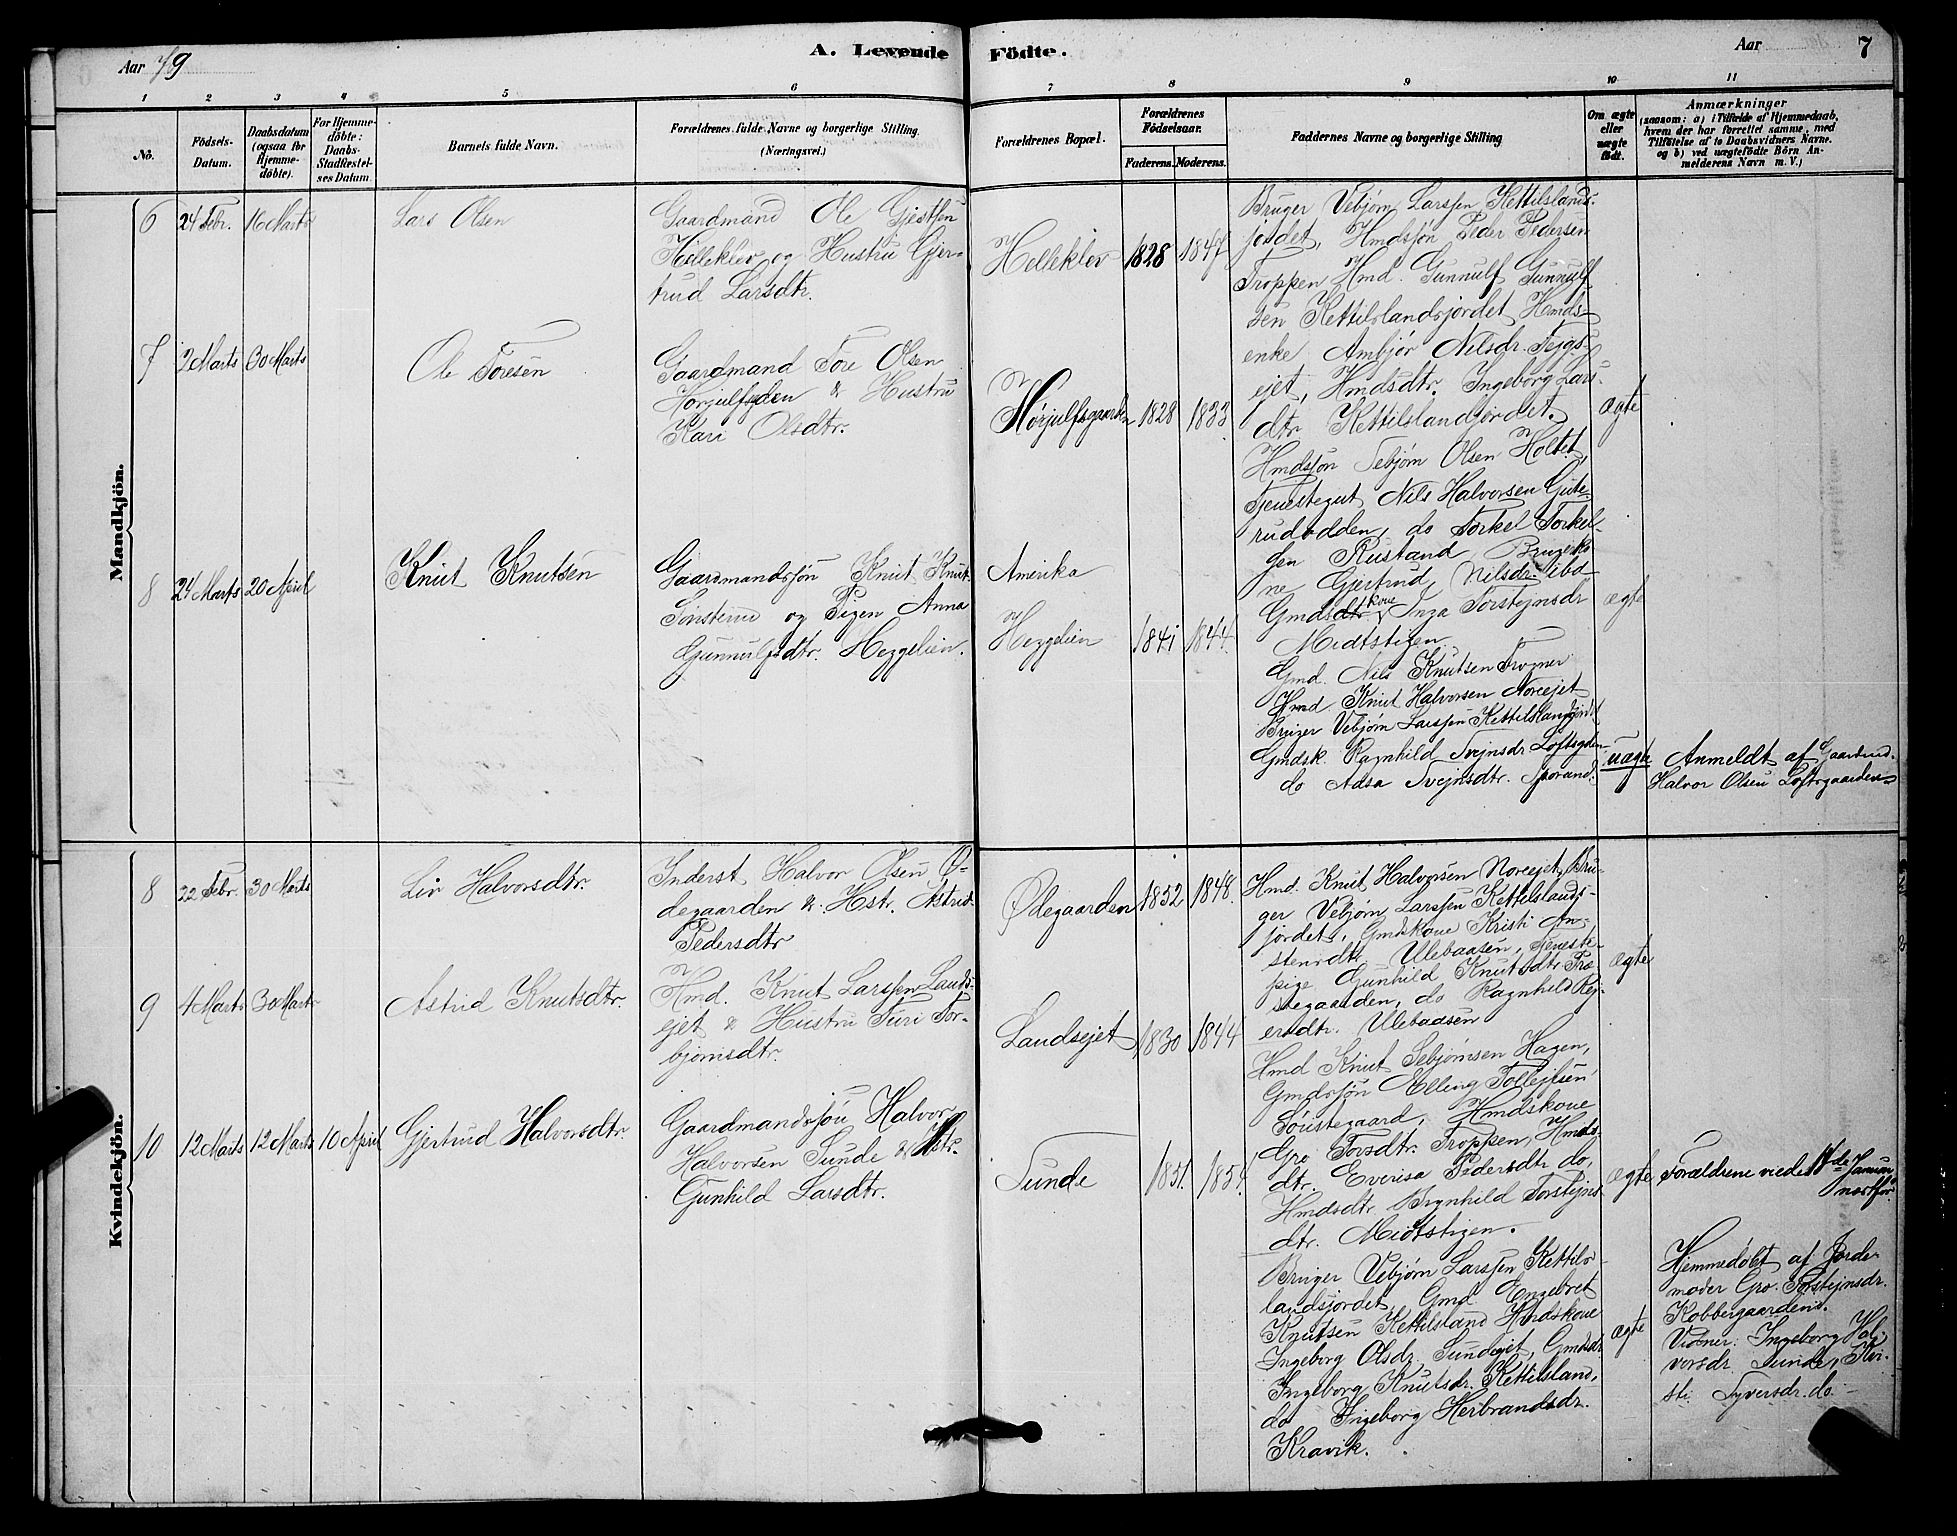 Aar 79
A. Levende Födte.
Aar
7
1 2 3 4 5 6 7 8 9 10 11
No.
Födsels-Datum.
Daabsdatum (ogsaa for Hjemme-döbte).
For Hjemme-döbte: Daabs-Stadfæstel-ses Datum
Barnets fulde Navn.
Forældrenes fulde Navne og borgerlige Stilling. (Næringsvei.)
Forældrenes Bopæl.
Forældrenes Födselsaar.
Faderens. Moderens.
Faddernes Navne og borgerlige Stilling
Om ægte eller uægte födt.
Anmærkninger
(saasom: a) i Tilfælde af Hjemmedaab, hvem der har forrettet samme, med Tilföielse af to Daabsvidners Navne. og b) ved uægtefödte Börn An-melderens Navn m. V.)
Mandkjön.
6 24 Febr. 16 Marts
Lars Olsen
Gaardmand Ole Gjestsen
Helleklev og Hustru Gjer-
trud Larsdtr.
Helleklev 1828 1847
Bruger Vebjørn Larssen Kettilslands-
jordet, Hmdsjøn Peder Pedersen
Troppen Hmd. Gunnulf Gunnulf-
sen Kettilslandsjordet Hmds-
enke Ambjør Nilsdr. Tejgs-
ejet, Hmdsdtr. Ingeborg Lars-
dtr Kettilslandjordet.
ægte
7 2 Marts 30 Marts
Ole Toresen
Gaardmand Tore Olsen
Horjulfsgden & Hustru
Kari Olsdtr.
Hørjulfsgaarden 1828 1833
Hmdsjøn Tebjørn Olsen Holtet,
Tjenestegut Nils Halvorsen Gute-
rudodden, do Torkel Torkel-
sen Rustand, Brugerko
ne Gjertrud Nilsdr. ibd
Gmdsdtr kone Inga Torstejnsdr
Midtstigen.
ægte
8 24 Marts 20 April
Knut Knutsen
Gaardmandssjøn Knut Knut.
Sønsterud og Pigen Anna
Gunnulfsdtr. Heggelien.
Amerika
Heggelien 1841 1844.
Gmd. Nils Knutsen Frogner
Hmd Knut Halvorsen Noreejet
Bruger Vebjørn Larssen Kettilslandsjordet
Gmdsk. Ragnhild Svejnsdr Loftsgden
do Adsa Svejnsdtr. Sporand.
uægte
Anmeldt af Gaardmd.
Halvor Olsen Loftsgaarden
Kvindekjön.
8 22 Febr. 30 Marts
Liv Halvorsdtr.
Inderst Halvor Olsen Ø-
degaarden & Hst. Astrid
Pedersdtr
Ødegaarden 1852 1848.
Hmd. Knut Halvorsen Noreejet, Bru-
ger Vebjørn Larssen Kettilslands-
jordet, Gmdskone Kristi An-
stensdtr Ulebaasen, Tjeneste-
pige Gunhild Knutsdtr Præ-
stegaarden, do Ragnhild Rej-
ersdtr. Ulebaasen
ægte
9 4 Marts 30 Marts
Astrid Knutsdtr.
Hmd. Knut Larssen Lands-
ejet & Hustru Turi Tor-
bjørnsdtr.
Landsejet 1830 1844
Hmd Knut Sebjørnsen Hagen,
Gmdssjøn Elling Tollejfsen
Søustegaard, Hmdskone
Gro Torsdtr. Troppen, Hmds-
dtr. Everisa Pedersdtr do,
Hmdsdtr. Brynhild Torstejns
dtr. Midtstigen.
ægte
Forældrene viede 1ste Januar
næstfør
10 12 Marts 12 Marts 10 April
Gjertrud Halvorsdtr.
Gaardmandssjøn Halvor
Halvorsen Sunde & Hstr.
Gunhild Larsdtr.
Sunde 1851. 1854.
Bruger Vebjørn Larssen Kettils-
landsjordet, Gmd Engebret
Knutsen Kettilsland Hmdskone
Ingeborg Olsdr. Sundejet, Gmdsdr.
Ingeborg Knutsdr. Kettilsland,
do Ingeborg Herbrandsdr.
Kravik.
ægte
Hjemmedøbt af Jorde-
moder Gro Torstejnsdr.
Kobbergaarden.
Vidner: Ingeborg Hal-
vorsdr. Sunde, Kri-
sti Syversdr. do.